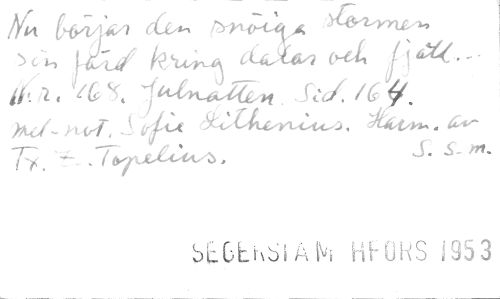 Nu börjar den snöiga stormen
sin färd kring dalar och fjäll...
N:r. 168. Julnatten. Sid. 164.
mel-not. Sofie Lithenius. Harm. av
Tx. Z. Topelius. S. S-m.
SEGERSTAM HFORS 1953